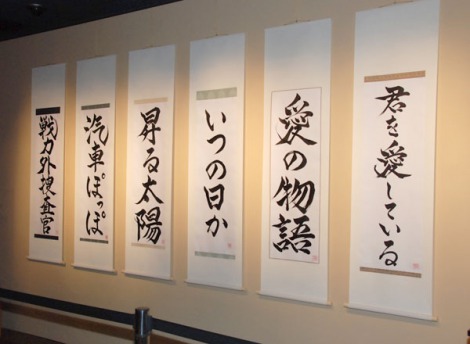 君を愛している
愛の物語
いつの日か
昇る太陽
汽車ぽっぽ
戦力外捜査官